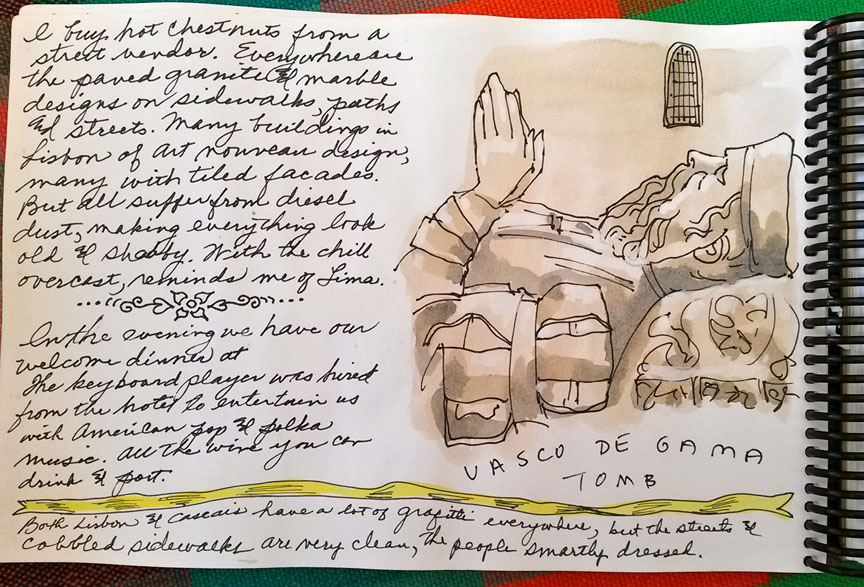 I buy hot chestnuts from a
street vendor. Everywhere are
the paved granite & marble
designs on sidewalks, paths
& streets. Many buildings in
Lisbon of art nouveau design,
many with tiled facades.
But all suffer from diesel
dust, making everything look
old & shabby. With the chill
overcast, reminds me of Lima.
In the evening we have our
welcome dinner at
The keyboard player was hired
from the hotel to entertain us
with American pop & polka
music. All the wine you can
drink & port.
VASCO DE GAMA
TOMB
Both Lisbon & Cascais have a lot of grafitti everywhere, but the streets &
cobbled sidewalks are very clean, the people smartly dressed.